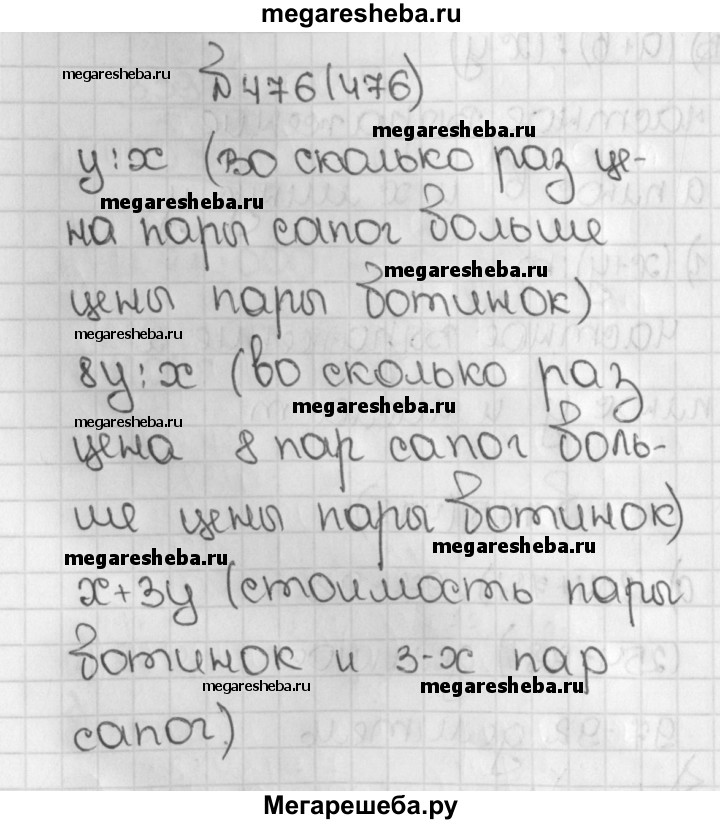 megaresheba.ru
№476(476)
megaresheba.ru
megaresheba.ru
y:x (во сколько раз це-
megaresheba.ru
на пары сапог больше
megaresheba.ru
цены пары ботинок)
megaresheba.ru
8y:x (во сколько раз
megaresheba.ru
megaresheba.ru
цена 8 пар сапог боль-
ше цены пары ботинок)
megaresheba.ru
megaresheba.ru
x+3y (стоимость пары
ботинок и 3-х пар
megaresheba.ru
megaresheba.ru
сапог)
Мегарешеба.ру